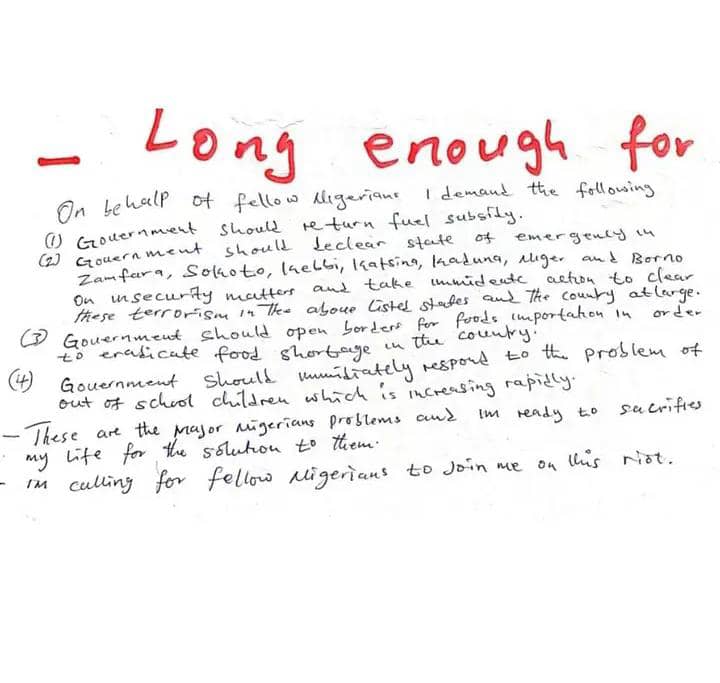 - Long enough for
On behalp of fellow Nigerians I demand the following
(1) Government should return fuel subsidy.
(2) Government should declear state of emergency in
Zamfara, Sokoto, Kebbi, Katsina, Kaduna, Niger and Borno
On insecurity matters and take immideate action to clear
these terrorism in the above listed states and the country at large.
(3) Government should open borders for foods importation in order
to eradicate food shortage in the country.
(4) Government should immidiately respond to the problem of
out of school children which is increasing rapidly.
- These are the Major Nigerians problems and im ready to sacrifies
my life for the solution to them.
- im calling for fellow Nigerians to join me on this riot.